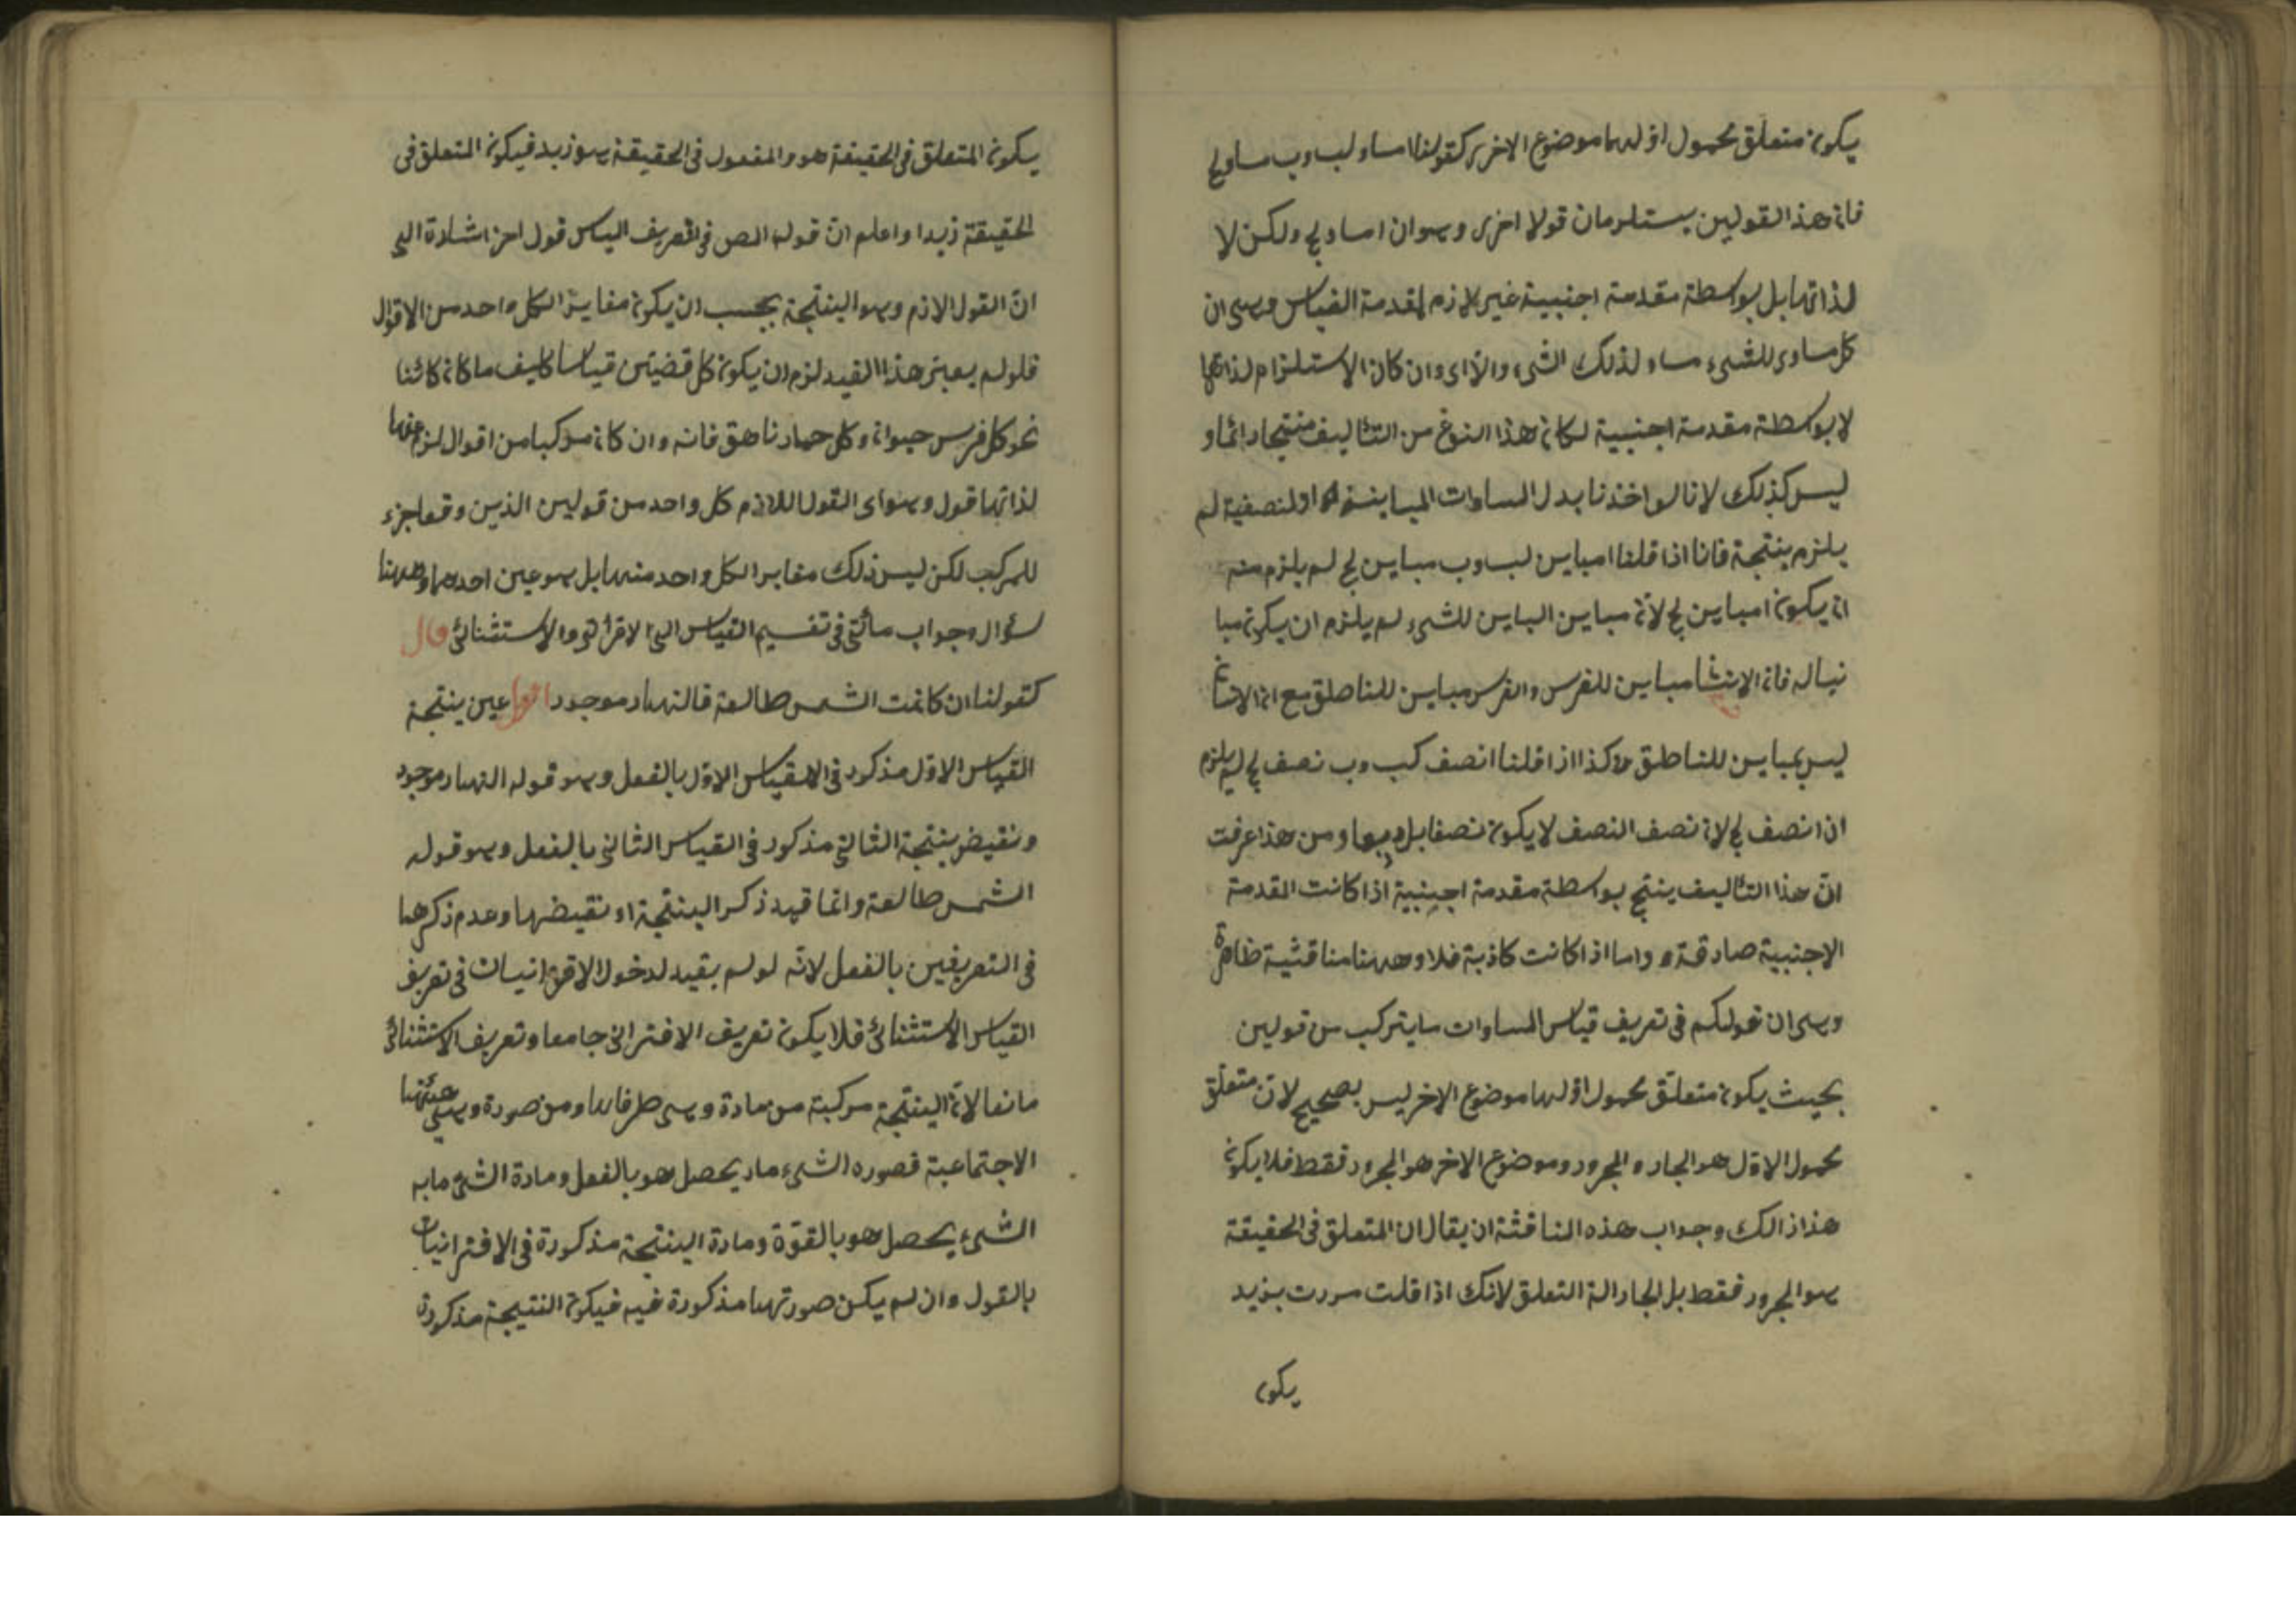 يكون متعلق محمول اولهما موضوع الاخر كقولنا ا مساو لب وب مساو لج
فان هذا القولين يستلزمان قولا اخرى وهو ان ا مساو لج ولكن لا
لذاتها بل بواسطة مقدمة اجنبية غير لازم لمقدمة القياس وهى ان
كل مساوى للشىء مساو لذلك الشىء والا اى وان كان الاستلزام لذاتها
لا بواسطة مقدمة اجنبية لكان هذا النوع من التأليف منتجا دائما و
ليس كذلك لانا لو اخذنا بدل المساوات المباينة او النصفية لم
يلزم ينتجة فانا اذا قلنا ا مباين لب وب مباين لج لم يلزم منه
ان يكون ا مباين لج لان مباين الباين للشىء لم يلزم ان يكون مبا
نيا له فان الانسا مباين للفرس والفرس مباين للناطق مع ان الانسا
ليس بمباين للناطق وكذا اذا قلنا ا نصف كب وب نصف لج لم يلزم
ان ا نصف لج لان نصف النصف لا يكون نصفا بل ربعا ومن هذا عرفت
ان هذا التأليف ينتج بواسطة مقدمة اجنبية اذا كانت المقدمة
الاجنبية صادقة واما اذا كانت كاذبة فلا وههنا مناقشة ظاهرة
وهى ان قولكم فى تعريف قياس المساوات ما يتركب من قولين
بحيث يكون متعلق محمول اولهما موضوع الاخر ليس بصحيح لان متعلق
محمول الاول هو الجار والمجرور وموضوع الاخر هو المجرور فقط فلا يكون
هذا ذالك وجواب هذه الناقشة ان يقال ان المتعلق فى الحقيقة
هو المجرور فقط بل الجار الة التعلق لانك اذا قلت مررت بزيد
يكون
يكون المتعلق فى الحقيقة هو والمفعول فى الحقيقة هو زيد فيكون المتعلق فى
الحقيقة زيدا واعلم ان قوله المص فى التعريف القياس قول اخر اشارة الى
ان القول الازم وهو الينتجة يجب ان يكون مغايرا لكل واحد من الاقوال
فلو لم يعبتر هذا القيد لزم ان يكون كل قضيتين قياسا كيف ما كان كائنا
نحو كل فرس حيوان وكل حمار ناهق فانه وان كان مركبا من اقوال لزم عنها
لذاتها قول وهو اى القول اللازم كل واحد من قولين الذين وقعا جزء
للمركب لكن ليس ذلك مغايرا لكل واحد منهما بل هو عين احدهما وههنا
سؤال وجواب مأتى فى تفسيم القياس الى الاقرانى والاستثنائى قال
كقولنا ان كانت الشمس طالعة فالنهار موجود اقول عين ينتجة
القياس الاول مذكور فى القياس الاول بالفعل وهو قوله النهار موجود
ونقيض ينتجة الثانى مذكور فى القياس الثانى بالفعل وهو قوله
الشمس طالعة وانما قيد ذكر الينتجة او نقيضها وعدم ذكرهما
فى التعريفين بالفعل لانه لو لم يقيد لدخول الاقترانيات فى تعريف
القياس الاستثنائى فلا يكون تعريف الاقترانى جامعا وتعريف الاستثنائى
مانعا لان الينتجة مركبة من مادة وهى طرفاها ومن صورة وهى هيئتها
الاجتماعية فصوره الشىء ما يحصل هو بالفعل ومادة الشئ ما به
الشىء يحصل هو بالقوة ومادة الينتجة مذكورة فى الاقترانيات
بالقول وان لم يكن صورتها مذكورة فيه فيكون النتيجة مذكورة